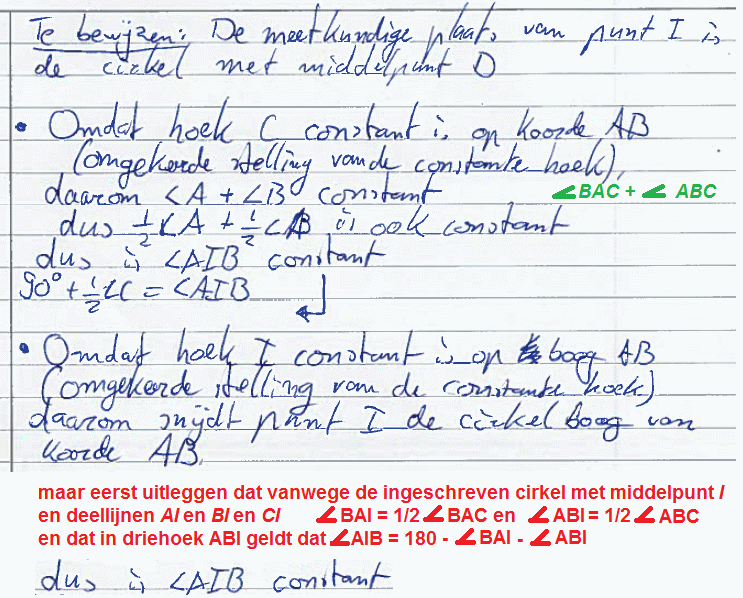 Te bewijzen: De meetkundige plaats van punt I is
de cirkel met middelpunt D
• Omdat hoek C constant is op koorde AB
(omgekeerde stelling van de constante hoek),
daarom ∠A + ∠B constant ∠BAC + ∠ ABC
dus ½∠A + ½∠B is ook constant
dus is ∠AIB constant
90° + ½∠C = ∠AIB
• Omdat hoek I constant is op boog AB
(omgekeerde stelling van de constante hoek)
daarom snijdt punt I de cirkelboog van
koorde AB.
maar eerst uitleggen dat vanwege de ingeschreven cirkel met middelpunt I
en deellijnen AI en BI en CI ∠BAI = 1/2∠BAC en ∠ABI = 1/2∠ABC
en dat in driehoek ABI geldt dat ∠AIB = 180 - ∠BAI - ∠ABI
dus is ∠AIB constant